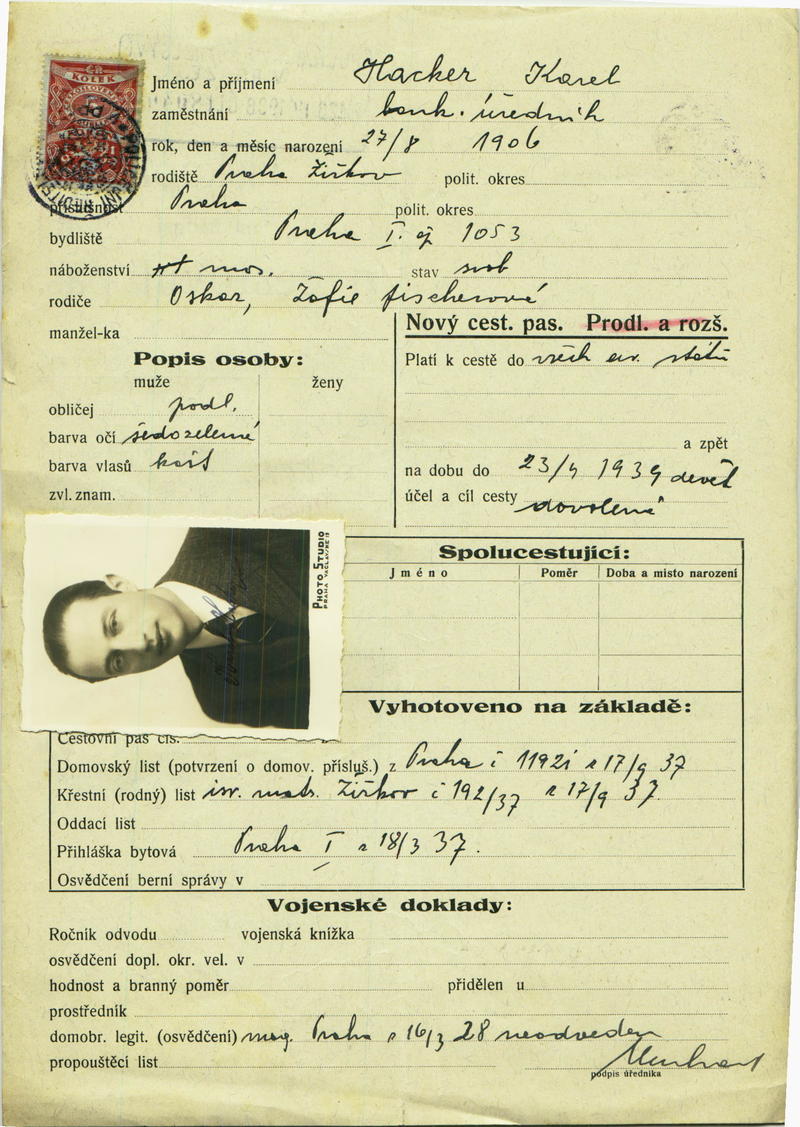 ČR
KOLEK
Jméno a příjmení Hacker Karel
zaměstnání bank. úředník
rok, den a měsíc narození 27/8 1906
rodiště Praha Žižkov polit. okres
příslušnost Praha polit. okres
bydliště Praha I. 1053
náboženství mos. stav svob
rodiče Oskar, Žofie Fischerová
manžel-ka
Nový cest. pas. Prodl. a rozš.
Popis osoby:
muže ženy
obličej podl.
barva očí šedozelené
barva vlasů kašt
zvl. znam.
Platí k cestě do všech ev. států
a zpět
na dobu do 23/9 1939 devět
účel a cíl cesty dovolená
PHOTO STUDIO
PRAHA VÁCLAVSKÉ
Spolucestující:
Jméno Poměr Doba a místo narození
Vyhotoveno na základě:
Cestovní pas čís.
Domovský list (potvrzení o domov. přísluš.) z Praha č 1192i z 17/9 37
Křestní (rodný) list isr. mat. Žižkov č 192/37 z 17/9 37.
Oddací list
Přihláška bytová Praha I z 18/3 37.
Osvědčení berní správy v
Vojenské doklady:
Ročník odvodu vojenská knížka
osvědčení dopl. okr. vel. v
hodnost a branný poměr přidělen u
prostředník
domobr. legit. (osvědčení) mag. Praha z 16/3 28 neodveden
propouštěcí list
podpis úředníka